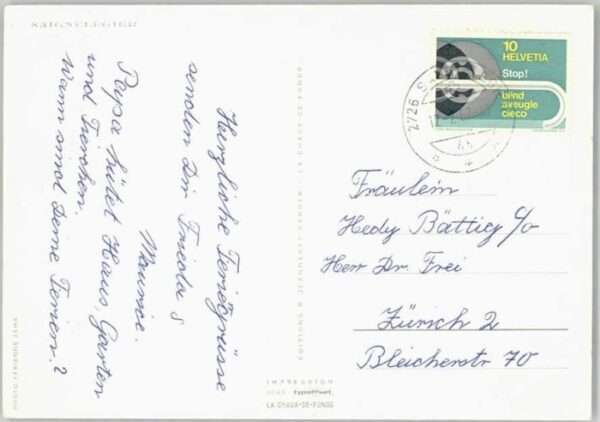 SAIGNELEGIER
Herzliche Feriengrüsse
senden Dir Frieda &
Maurice.
Papa hütet Haus, Garten
und Tierchen.
Wann sind Deine Ferien?
10
HELVETIA
Stop!
blind
aveugle
cieco
2726
Fräulein
Hedy Bättig c/o
Herr Dr. Frei
Zürich 2
Bleicherstr 70
PHOTO FERNAND JEHA
LA CHAUX-DE-FONDS
IMPRESSION
typoffset
LA CHAUX-DE-FONDS